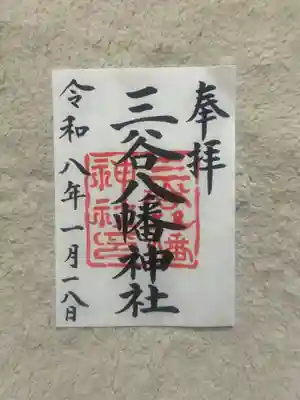 奉拝
三谷八幡神社
令和八年一月一八日